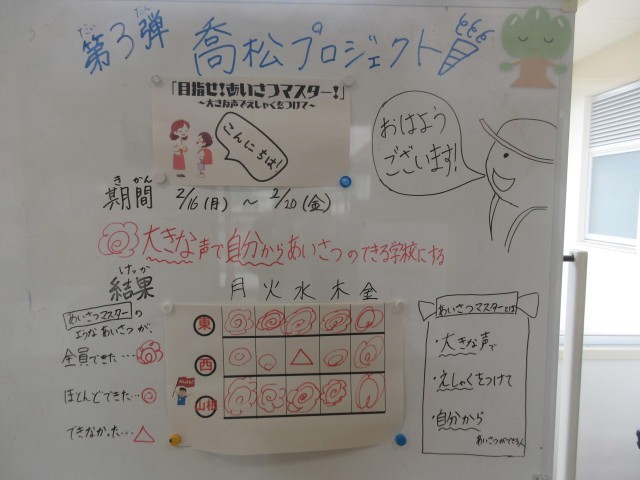 第3弾 喬松プロジェクト
だい だん
「目指せ!あいさつマスター!」
~大きな声でえしゃくをつけて~
こんにちは!
おはよう
ございます!
きかん
期間 2/16(月) ~ 2/20(金)
大きな声で自分からあいさつのできる学校にする
けっか
結果
月 火 水 木 金
あいさつマスターの
ようなあいさつが、
全員できた…
ほとんどできた…◎
できなかった…△
東
西 △
山根
あいさつマスターとは
・大きな声で
・えしゃくをつけて
・自分から
あいさつができる人